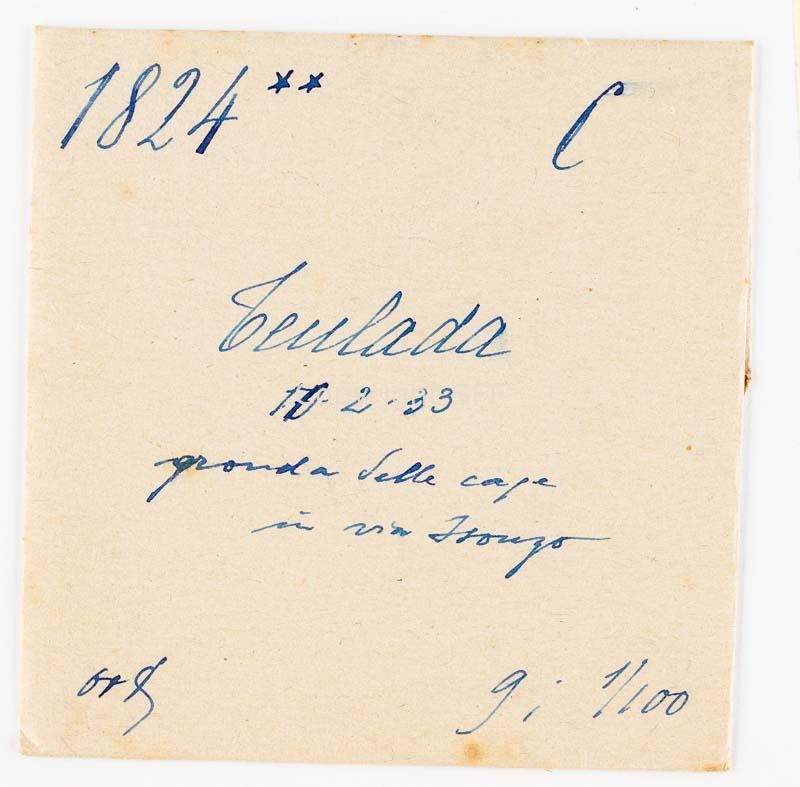 1824** C
Teulada
2·33
gronda delle case
in via Isonzo
9; 1/100